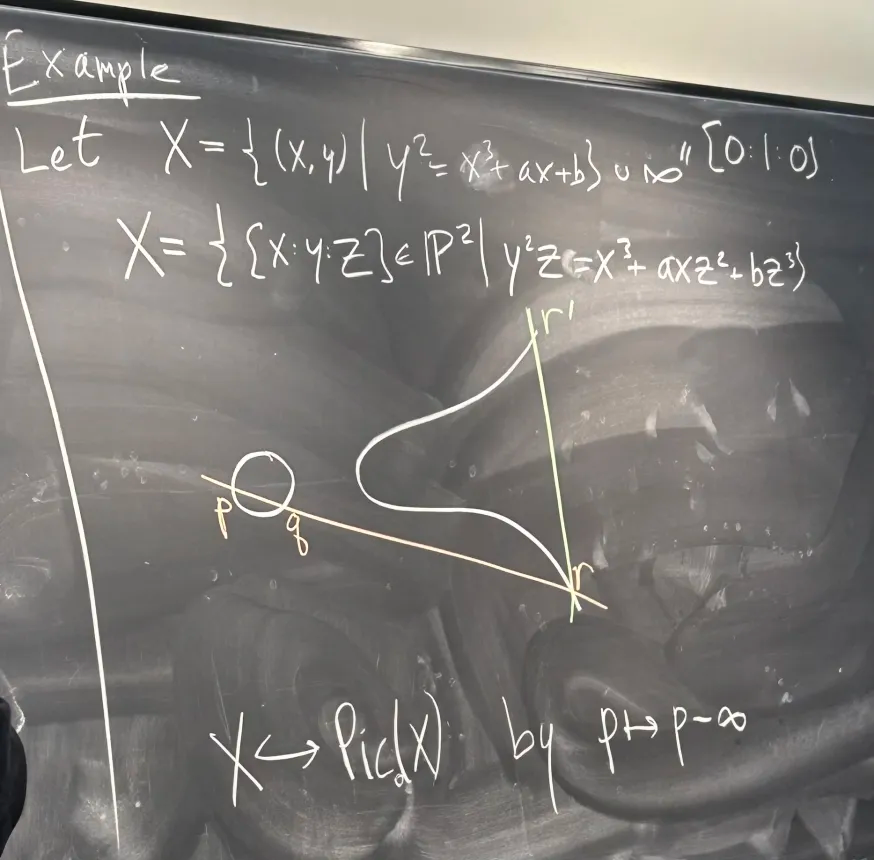 Example
Let X = {(x,y) | y² = x³ + ax+b} ∪ ∞ " [0:1:0]
X = {[x:y:z] ∈ ℙ² | y²z = x³ + axz² + bz³}
r'
p
q
r
X ↪ Pic₀(X) by p ↦ p-∞